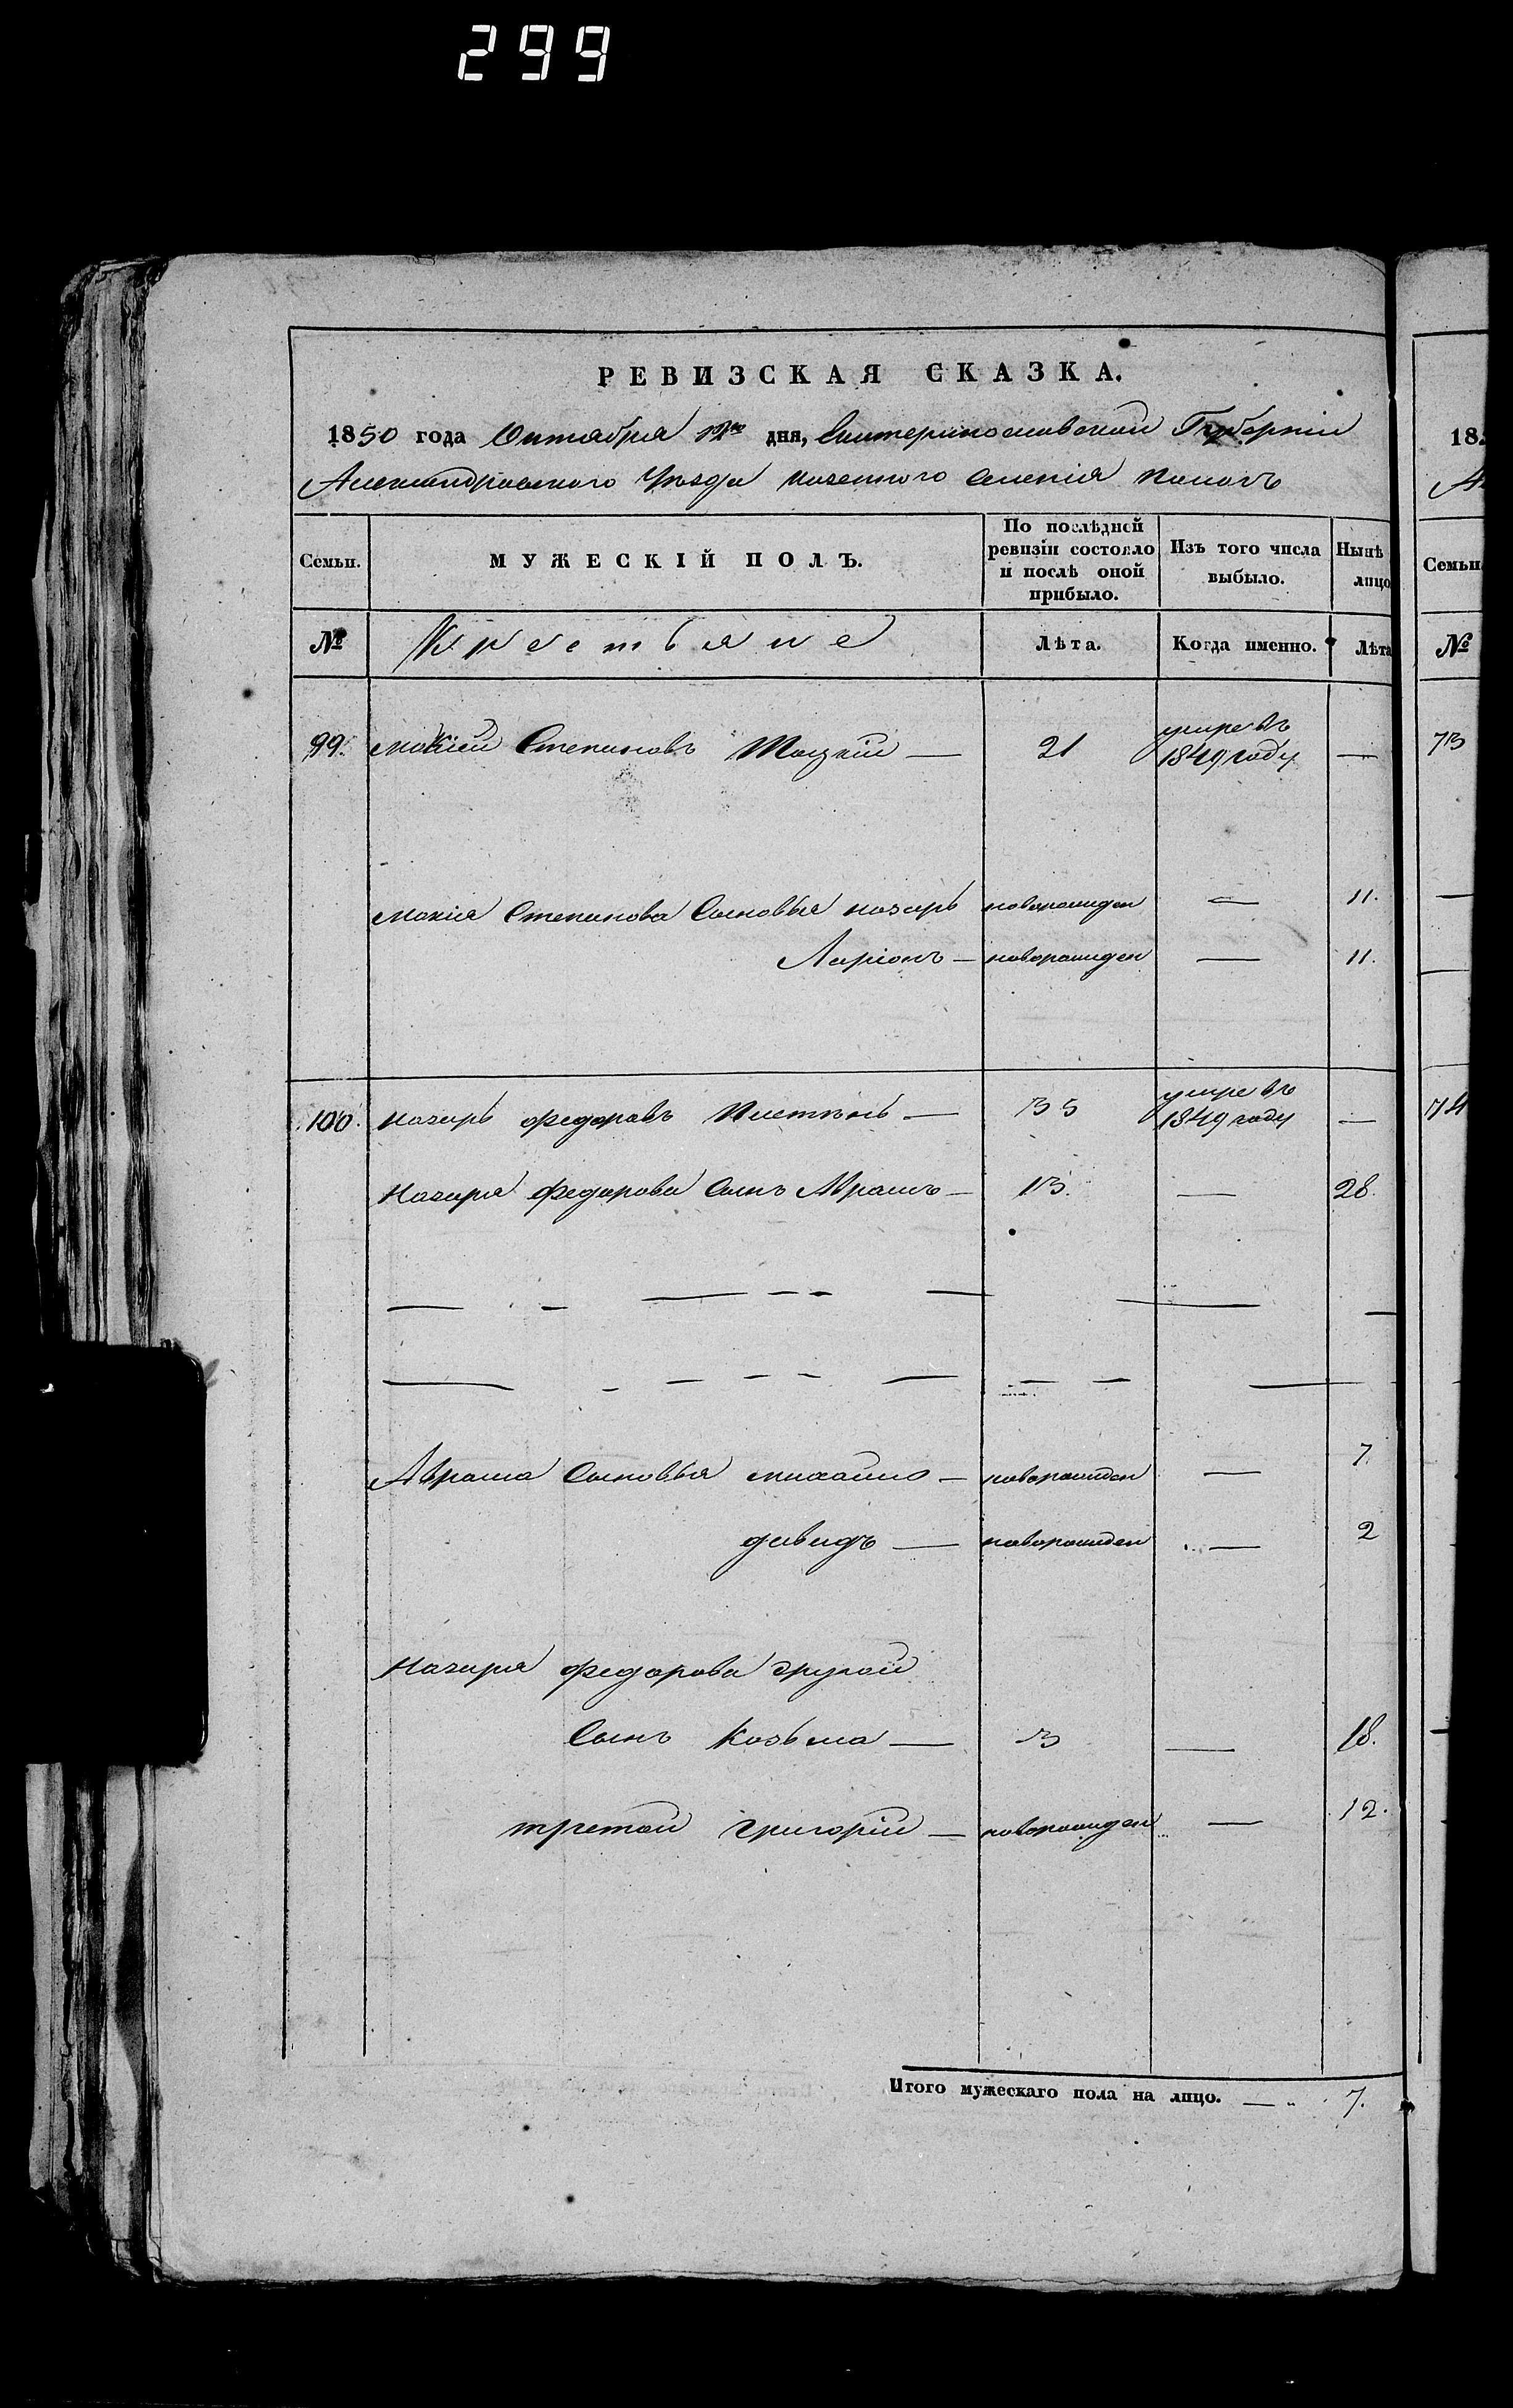 299
РЕВИЗСКАЯ СКАЗКА.
1850 года Октября 12го дня, Екатеринославской Губерніи
Александровскаго Уѣзда казеннаго селенія
18
Семьи. МУЖЕСКІЙ ПОЛЪ. По послѣдней ревизіи состояло и послѣ оной прибыло. Изъ того числа выбыло. Нынѣ лицо
Семьи
№ Крестьяне Лѣта. Когда именно. Лѣта
№
99. Мокій Степановъ 21 умре въ 1849 году —
73
Мокія Степанова Сыновья назаръ новорожден — 11.
Ларіонъ — новорожден — 11.
100. Назаръ Федоровъ — 35 умре въ 1849 году —
74
Назара Федорова Сынъ Аврамъ — 13. — 28.
Аврама Сыновья михайло — новорожден — 7
давидъ — новорожден — 2
Назара Федорова другой
Сынъ Козьма — 3 — 18.
третой григорій — новорожден — 12.
Итого мужескаго пола на лицо. — 7.